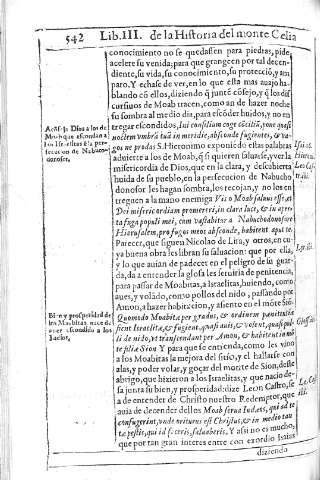 542 Lib. III. de la Historia del monte Celia
conocimiento no se quedassen para piedras, pide,
acelere su venida; para que grangeen por tal decen-
diente, su vida, su conocimiento, su proteccion, y am
paro. Y echase de ver, en lo que esta mas auajo ha-
blando cō ellos, diziendo q̃ junte cōsejo, y q̃ los dis
cursiuos de Moab tracen, como an de hazer noche
su sombra al medio dia, para escōder huidos, y no en
tregar escondidos, Ini consilium coge cōcilium, pone quasi
noctem vmbrā tuā in meridie, absconde fugientes, & va-
gos ne prodas S. Hieronimo exponiēdo estas palabras
aduierte a los de Moab, q̃ si quieren saluarse, vser la
misericordia de Dios, que en la clara, y descubierta
huida de su pueblo, en la persecucion de Nabucho
donosor les hagan sombra, los recojan, y no los en
treguen a la mano enemiga Vis o Moab saluus esse, et
Dei misericordiam promereri, in clara luce, & in aper-
ta fuga populi mei, cum vastabitur a Nabuchodonosore
Hierusalem, profugos meos absconde, habitent apud te.
Parecer, que siguen Nicolao de Lira, y otros, en cu-
ya buena obra les libran su saluacion: que por ella,
y lo que auian de padecer en el peligro de su guar-
da, da a entender la glosa les seruiria de penitencia,
para passar de Moabitas, a Israelitas, huiendo, como
aues, y volādo, como pollos del nido, passando por
Arnon, a hazer habitacion, y asiento en el mōte Siō.
Quomodo Moabitæ per gradus, & ordinem pœnitentiæ
sient Israelitæ, & fugient, quasi auis, & volent, quasi pul-
li de nido, et transcendant per Arnon, & habitent in mō
te filiæ Sion Y para que se entienda, como les vino
a los Moabitas la mejora del sitio, y el hallarse con
alas, y poder volar, y goçar del monte de Sion, deste
abrigo, que hizieron a los Israelitas, y que nacio de-
sa junta su bien, y prosperidad: dize Leon Castro, se
a de entender de Christo nuestro Redemptor, que
auia de decender dellos Moab serua Iudæos, qui ad te
confugerint, vnde oriturus est Christus, & in medio tau
que por tan gran interes entre con exordio Isaias
dizienda